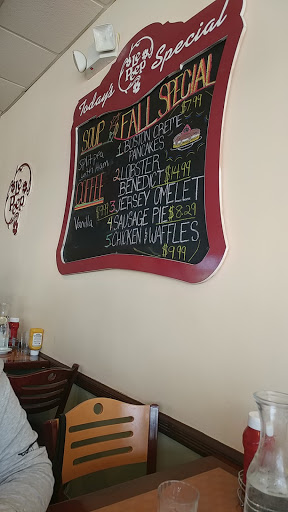 Today's
Le
Peep
Special
SOUP
Split pea
with Ham
COFFEE
Vanilla
FALL SPECIAL
$7.99
1. BOSTON CREME
PANCAKES
2. LOBSTER
BENEDICT $14.99
3. JERSEY OMELET
4. SAUSAGE PIE $8.29
5. CHICKEN & WAFFLES
$9.99
Le
Peep